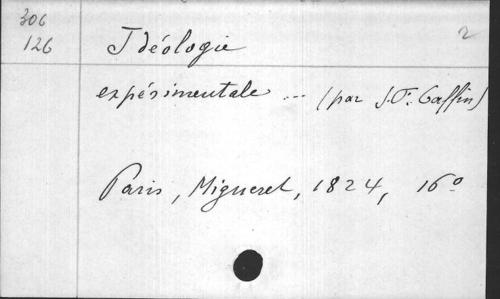 306
126
2
Idéologie
expérimentale ... (par J.F. Caffin)
Paris, Migneret, 1824, 16º